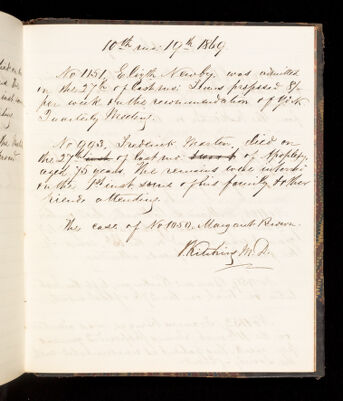 10th mo: 19th 1869.
No 1151, Elizth Newby was admitted
on the 27th of last mo: Terms proposed 8/-
per week on the recommendation of
Quarterly Meeting.
No 993, Frederick Morton, died on
the 27th of last mo of Apoplexy,
aged 75 years. The remains were interred
on the 1st inst some of his family & other
friends attending.
The case of No 1050. Margaret Brown.
J Kitching M.D.